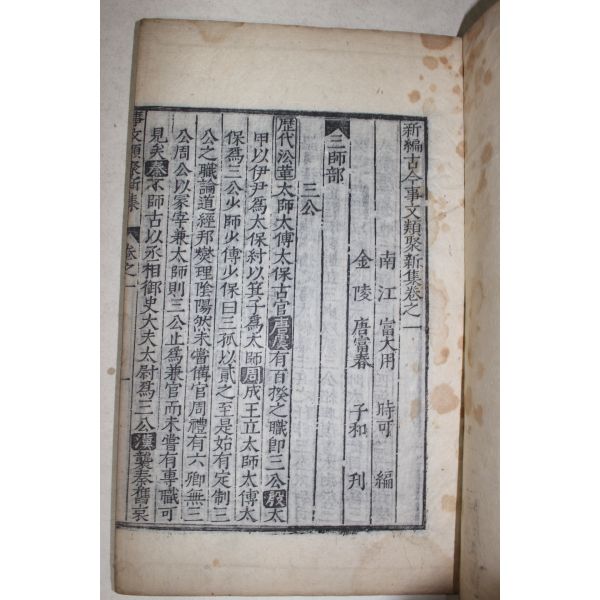 新編古今事文類聚新集卷之一
南江 富大用 時可 編
金陵 唐富春 子和 刊
三師部
三公
歷代沿革太師太傅太保古官唐虞有百揆之職即三公殷太
甲以伊尹爲太保紂以箕子爲太師周成王立太師太傅太
保爲三公少師少傅少保曰三孤以貳之至是始有定制三
公之職論道經邦燮理陰陽然未嘗備官周禮有六卿無三
公周公以冢宰兼太師則三公止爲兼官而未嘗有專職可
見矣秦不師古以丞相御史大夫太尉爲三公漢襲秦舊哀
事文類聚新集 卷之一 一